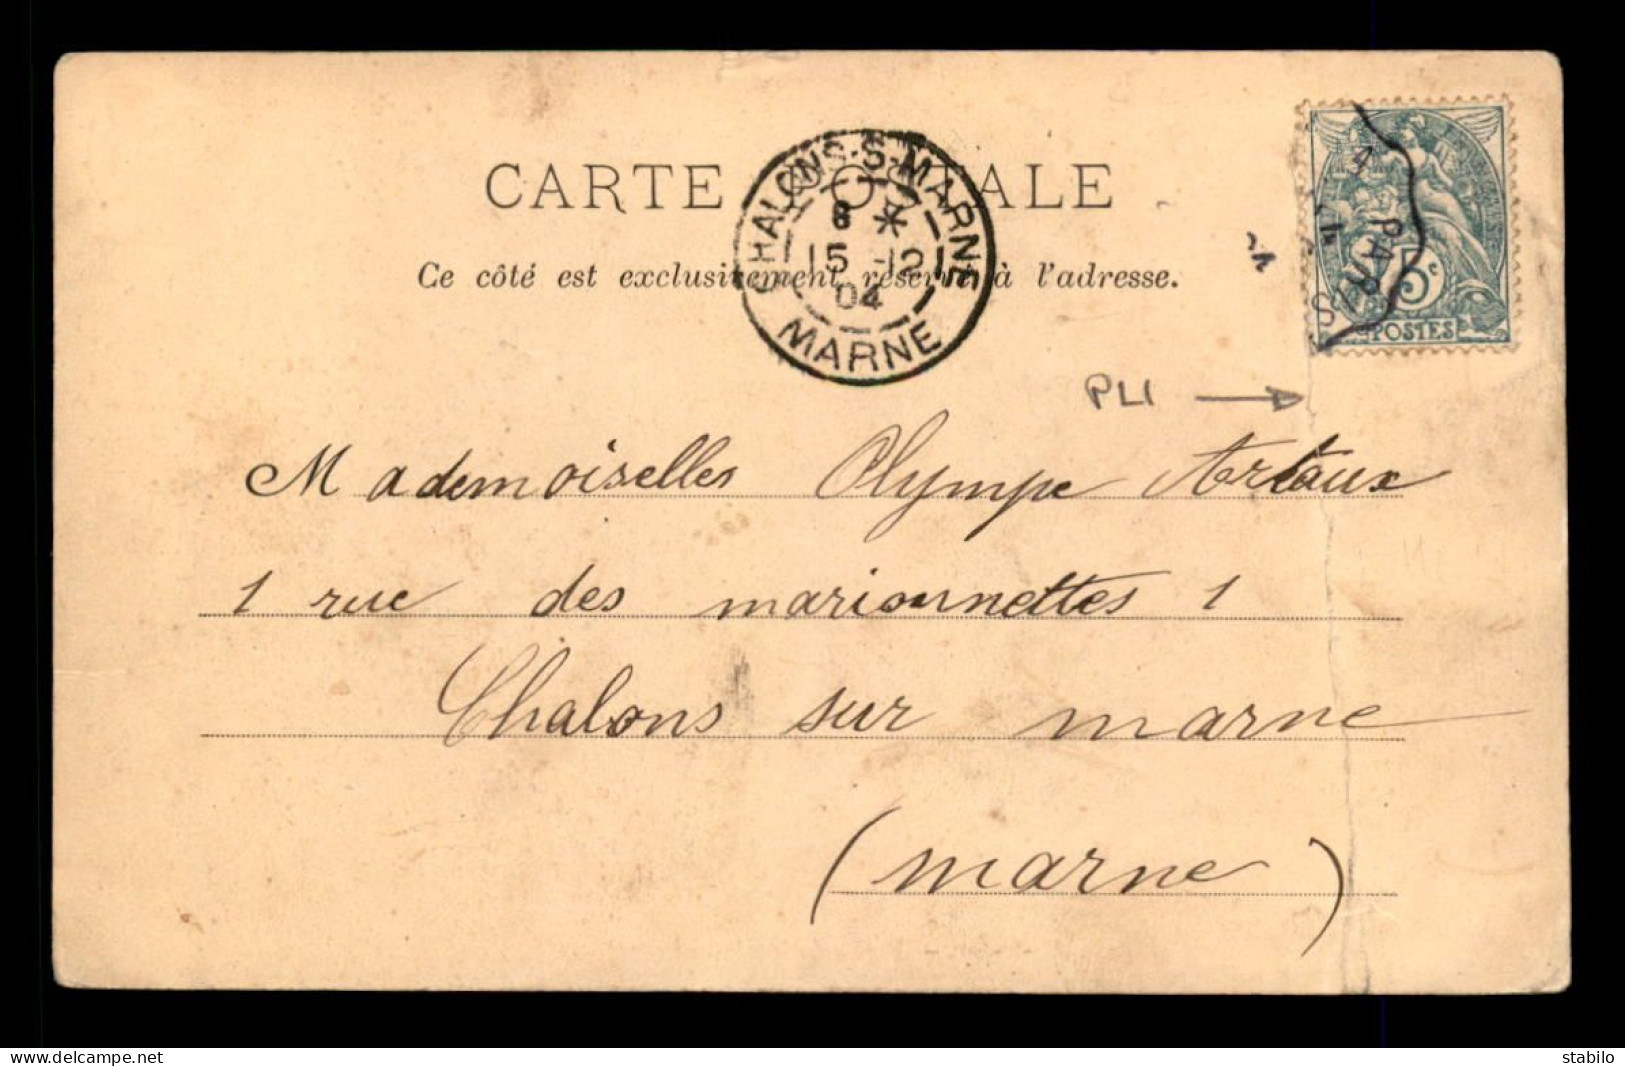 CARTE POSTALE
Ce côté est exclusivement réservé à l'adresse.
CHALONS-S-MARNE
8 *
15 -12
04
MARNE
PARIS
5c
POSTES
PLI
Mademoiselles Olympe Artaux
1 rue des marionnettes 1
Chalons sur marne
(marne)
www.delcampe.net
stabilo